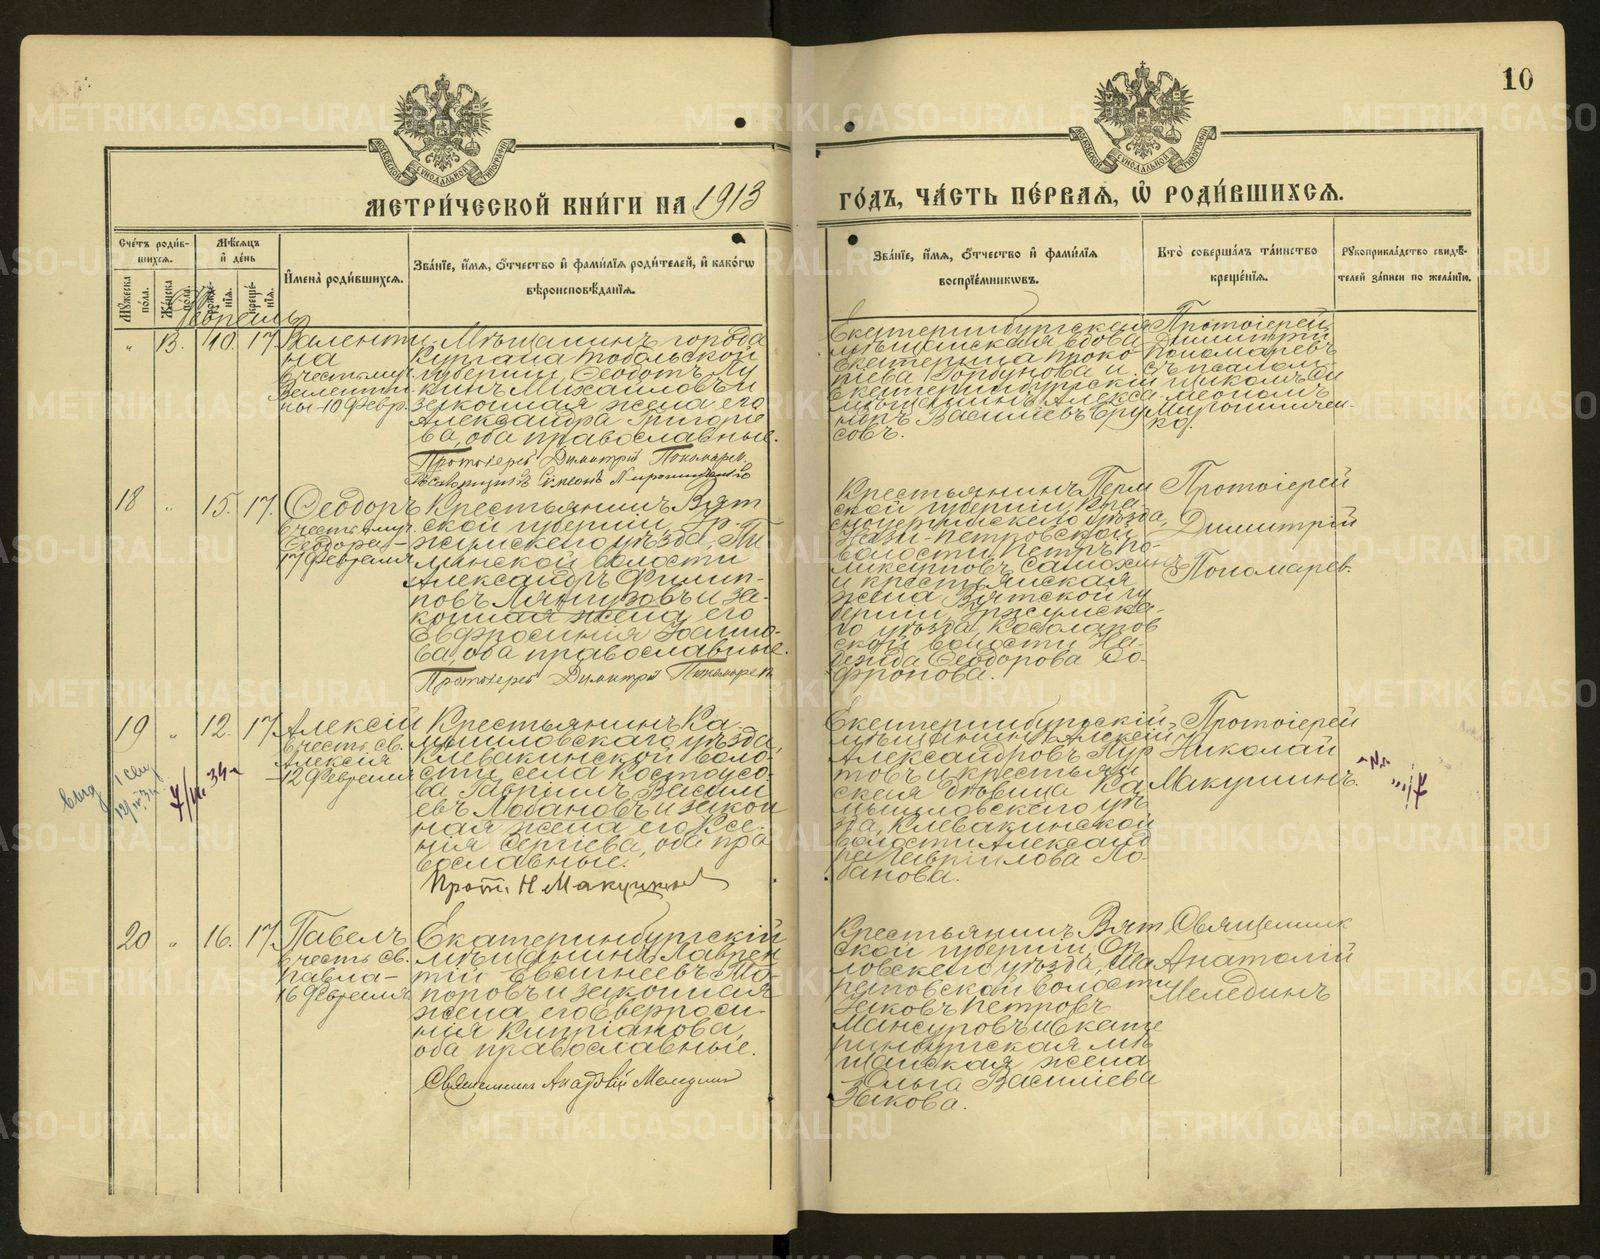 10
МОСКОВСКОЙ СѴНОДАЛЬНОЙ ТИПОГРАФІИ
МОСКОВСКОЙ СѴНОДАЛЬНОЙ ТИПОГРАФІИ
МЕТРИ́ЧЕСКОЙ КНИ́ГИ НА 1913 ГО́ДЪ, ЧА́СТЬ ПЕ́РВАѦ, Ѡ҆ РОДИ́ВШИХСѦ.
Сче́тъ роди́в-
шихсѧ.
Мꙋ́жеска
по́ла.
Же́нска
по́ла.
Мѣ́сѧцъ
и҆ де́нь
рожде́-
нїѧ.
креще́-
нїѧ.
И҆мена̀ роди́вшихсѧ.
Зва́нїе, и҆́мѧ, ѻ҆́тчество и҆ фами́лїѧ роди́телей, и҆ како́гѡ
вѣроисповѣ́данїѧ.
Зва́нїе, и҆́мѧ, ѻ҆́тчество и҆ фами́лїѧ
воспрїе́мникѡвъ.
Кто̀ соверша́лъ та́инство
креще́нїѧ.
Рꙋкоприкла́дство свидѣ́-
телей за́писи по жела́нїю.
Февраль
" 13. 10. 17
Валенти-
на
въ честь муч.
Валенти-
ны-10 Февр.
Мѣщанинъ города
Кургана Тобольской
губерніи, Ѳеодотъ Лу
кинъ Михайловъ и
законная жена его
Александра Григорье
ва, оба православные.
Протоіерей Димитрій Пономарев
Псаломщикъ Симеонъ Миропольск
Екатеринбургская
мѣщанская вдова
Екатерина Проко
піева Горбунова и
Екатеринбургскій
мѣщанинъ Алекса
ндръ Васильевъ Бру
совъ.
Протоіерей
Димитрій
Пономаревъ
съ псалом-
щикомъ Си
меономъ
18 " 15. 17.
Ѳеодоръ
въ честь муч.
Ѳеодора-
17 Февраля
Крестьянинъ Вят
ской губерніи, Ур-
жумскаго уѣзда,
волости
Александръ Филип-
повъ Лянгузовъ и за-
конная жена его
Евфросинія Іоанно-
ва, оба православные.
Протоіерей Димитрій Пономарев
Крестьянинъ Перм
ской губерніи, Кра
сноуфимскаго уѣзда,
Петровской
волости, Петръ По-
ликарповъ Самохинъ
и крестьянская
жена Вятской гу
берніи Уржумска-
го уѣзда,
ской волости На-
дежда Ѳеодорова Со-
фронова.
Протоіерей
Димитрій
Пономарев.
19 " 12. 17
Алексій
въ честь св.
Алексія
-12 Февраля
Крестьянинъ Ка-
мышловскаго уѣзда,
Клевакинской воло-
сти, села Костоусо-
ва Гавріилъ Василь
евъ Лобановъ и закон
ная жена его Ксе-
нія Сергіева, оба пра
вославные.
Прот. Н Макушинъ
Екатеринбургскій
мѣщанинъ Алексій
Александровъ Пур
товъ и крестьян
ская дѣвица Ка
мышловскаго уѣ
зда, Клевакинской
волости Александ
ра Гавріилова Ло
банова.
Протоіерей
Николай
Макушинъ.
20 " 16. 17
Павелъ
въ честь св.
Павла-
16 Февраля
Екатеринбургскій
мѣщанинъ Лаврен
тій Евсигнеевъ То-
поровъ и законная
жена его Евфроси-
нія Кипріанова,
оба православные.
Священникъ Анатолій Меледин
Крестьянинъ Вят
ской губерніи, Ор
ловскаго уѣзда,
волости
Петровъ
Мансуровъ и Екате
ринбургская мѣ
щанская жена
Ольга Васильева
Зыкова.
Священник
Анатолій
Мелединъ